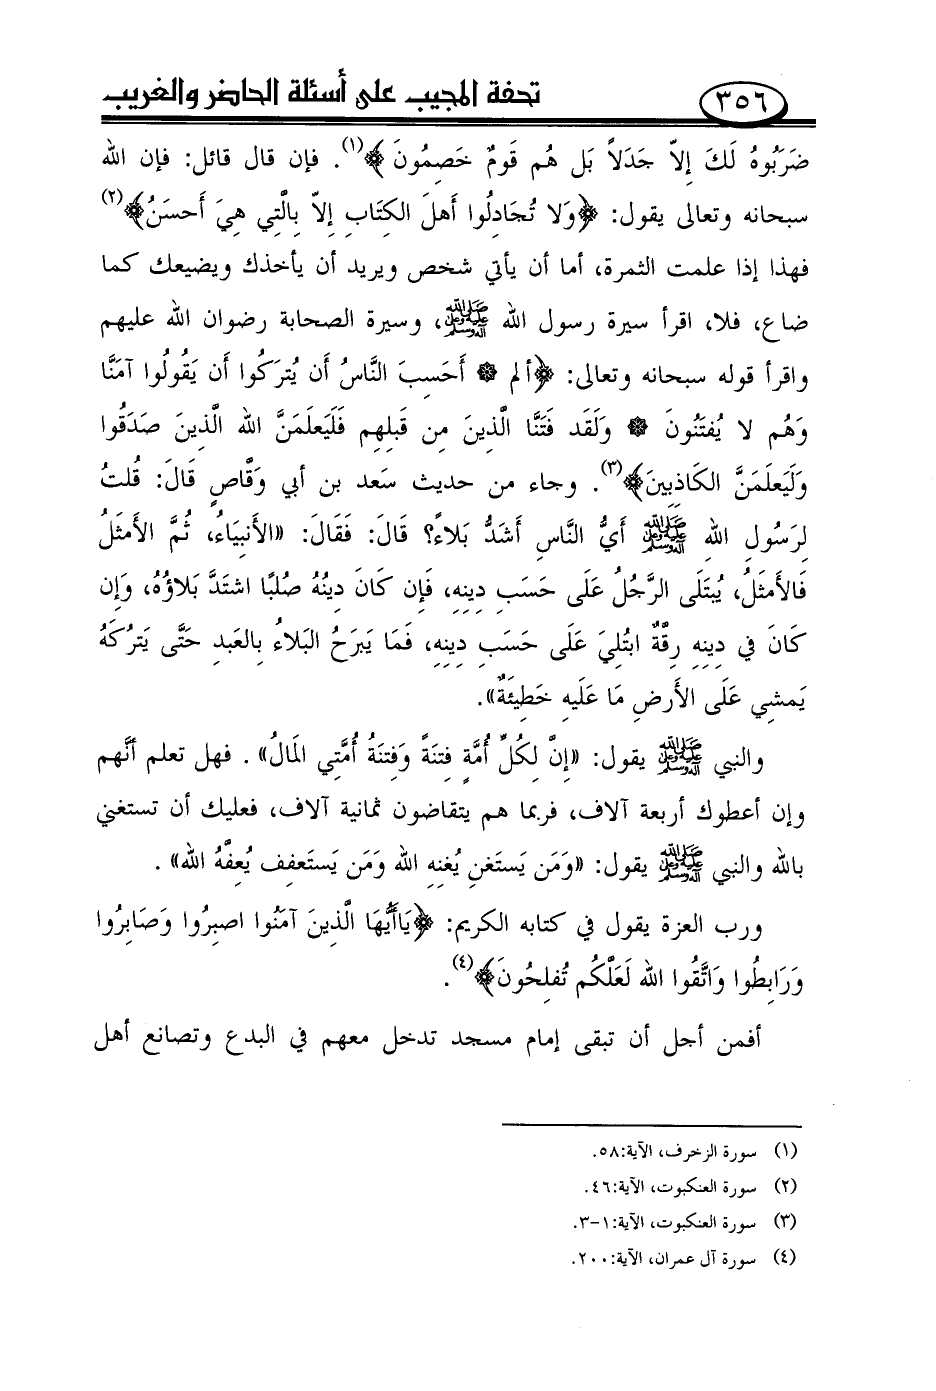 ٣٥٦
تحفة المجيب على أسئلة الحاضر والغريب
ضَرَبُوهُ لَكَ إِلاّ جَدَلاً بَل هُم قَومٌ خَصِمُونَ ﴾(١). فإن قال قائل: فإن الله
سبحانه وتعالى يقول: ﴿وَلا تُجَادِلُوا أَهلَ الكِتَابِ إِلاّ بِالَّتِي هِيَ أَحسَنُ﴾(٢)
فهذا إذا علمت الثمرة، أما أن يأتي شخص ويريد أن يأخذك ويضيعك كما
ضاع، فلا، اقرأ سيرة رسول الله ﷺ، وسيرة الصحابة رضوان الله عليهم
واقرأ قوله سبحانه وتعالى: ﴿ألم ۞ أَحَسِبَ النَّاسُ أَن يُترَكُوا أَن يَقُولُوا آمَنَّا
وَهُم لا يُفتَنُونَ ۞ وَلَقَد فَتَنَّا الَّذِينَ مِن قَبلِهِم فَلَيَعلَمَنَّ الله الَّذِينَ صَدَقُوا
وَلَيَعلَمَنَّ الكَاذِبِينَ﴾(٣). وجاء من حديث سَعد بن أبي وَقَّاصٍ قَالَ: قُلتُ
لِرَسُولِ الله ﷺ أَيُّ النَّاسِ أَشَدُّ بَلاءً؟ قَالَ: فَقَالَ: «الأَنبِيَاءُ، ثُمَّ الأَمثَلُ
فَالأَمثَلُ، يُبتَلَى الرَّجُلُ عَلَى حَسَبِ دِينِهِ، فَإِن كَانَ دِينُهُ صُلبًا اشتَدَّ بَلاؤُهُ، وَإِن
كَانَ فِي دِينِهِ رِقَّةٌ ابتُلِيَ عَلَى حَسَبِ دِينِهِ، فَمَا يَبرَحُ البَلاءُ بِالعَبدِ حَتَّى يَترُكَهُ
يَمشِي عَلَى الأَرضِ مَا عَلَيهِ خَطِيئَةٌ».
والنبي ﷺ يقول: «إِنَّ لِكُلِّ أُمَّةٍ فِتنَةً وَفِتنَةُ أُمَّتِي المَالُ» . فهل تعلم أنَّهم
وإن أعطوك أربعة آلاف، فربما هم يتقاضون ثمانية آلاف، فعليك أن تستغني
بالله والنبي ﷺ يقول: «وَمَن يَستَغنِ يُغنِهِ الله وَمَن يَستَعفِف يُعِفَّهُ الله» .
ورب العزة يقول في كتابه الكريم: ﴿يَاأَيُّهَا الَّذِينَ آمَنُوا اصبِرُوا وَصَابِرُوا
وَرَابِطُوا وَاتَّقُوا الله لَعَلَّكُم تُفلِحُونَ﴾(٤).
أفمن أجل أن تبقى إمام مسجد تدخل معهم في البدع وتصانع أهل
(١) سورة الزخرف، الآية:٥٨.
(٢) سورة العنكبوت، الآية:٤٦.
(٣) سورة العنكبوت، الآية:١-٣.
(٤) سورة آل عمران، الآية:٢٠٠.